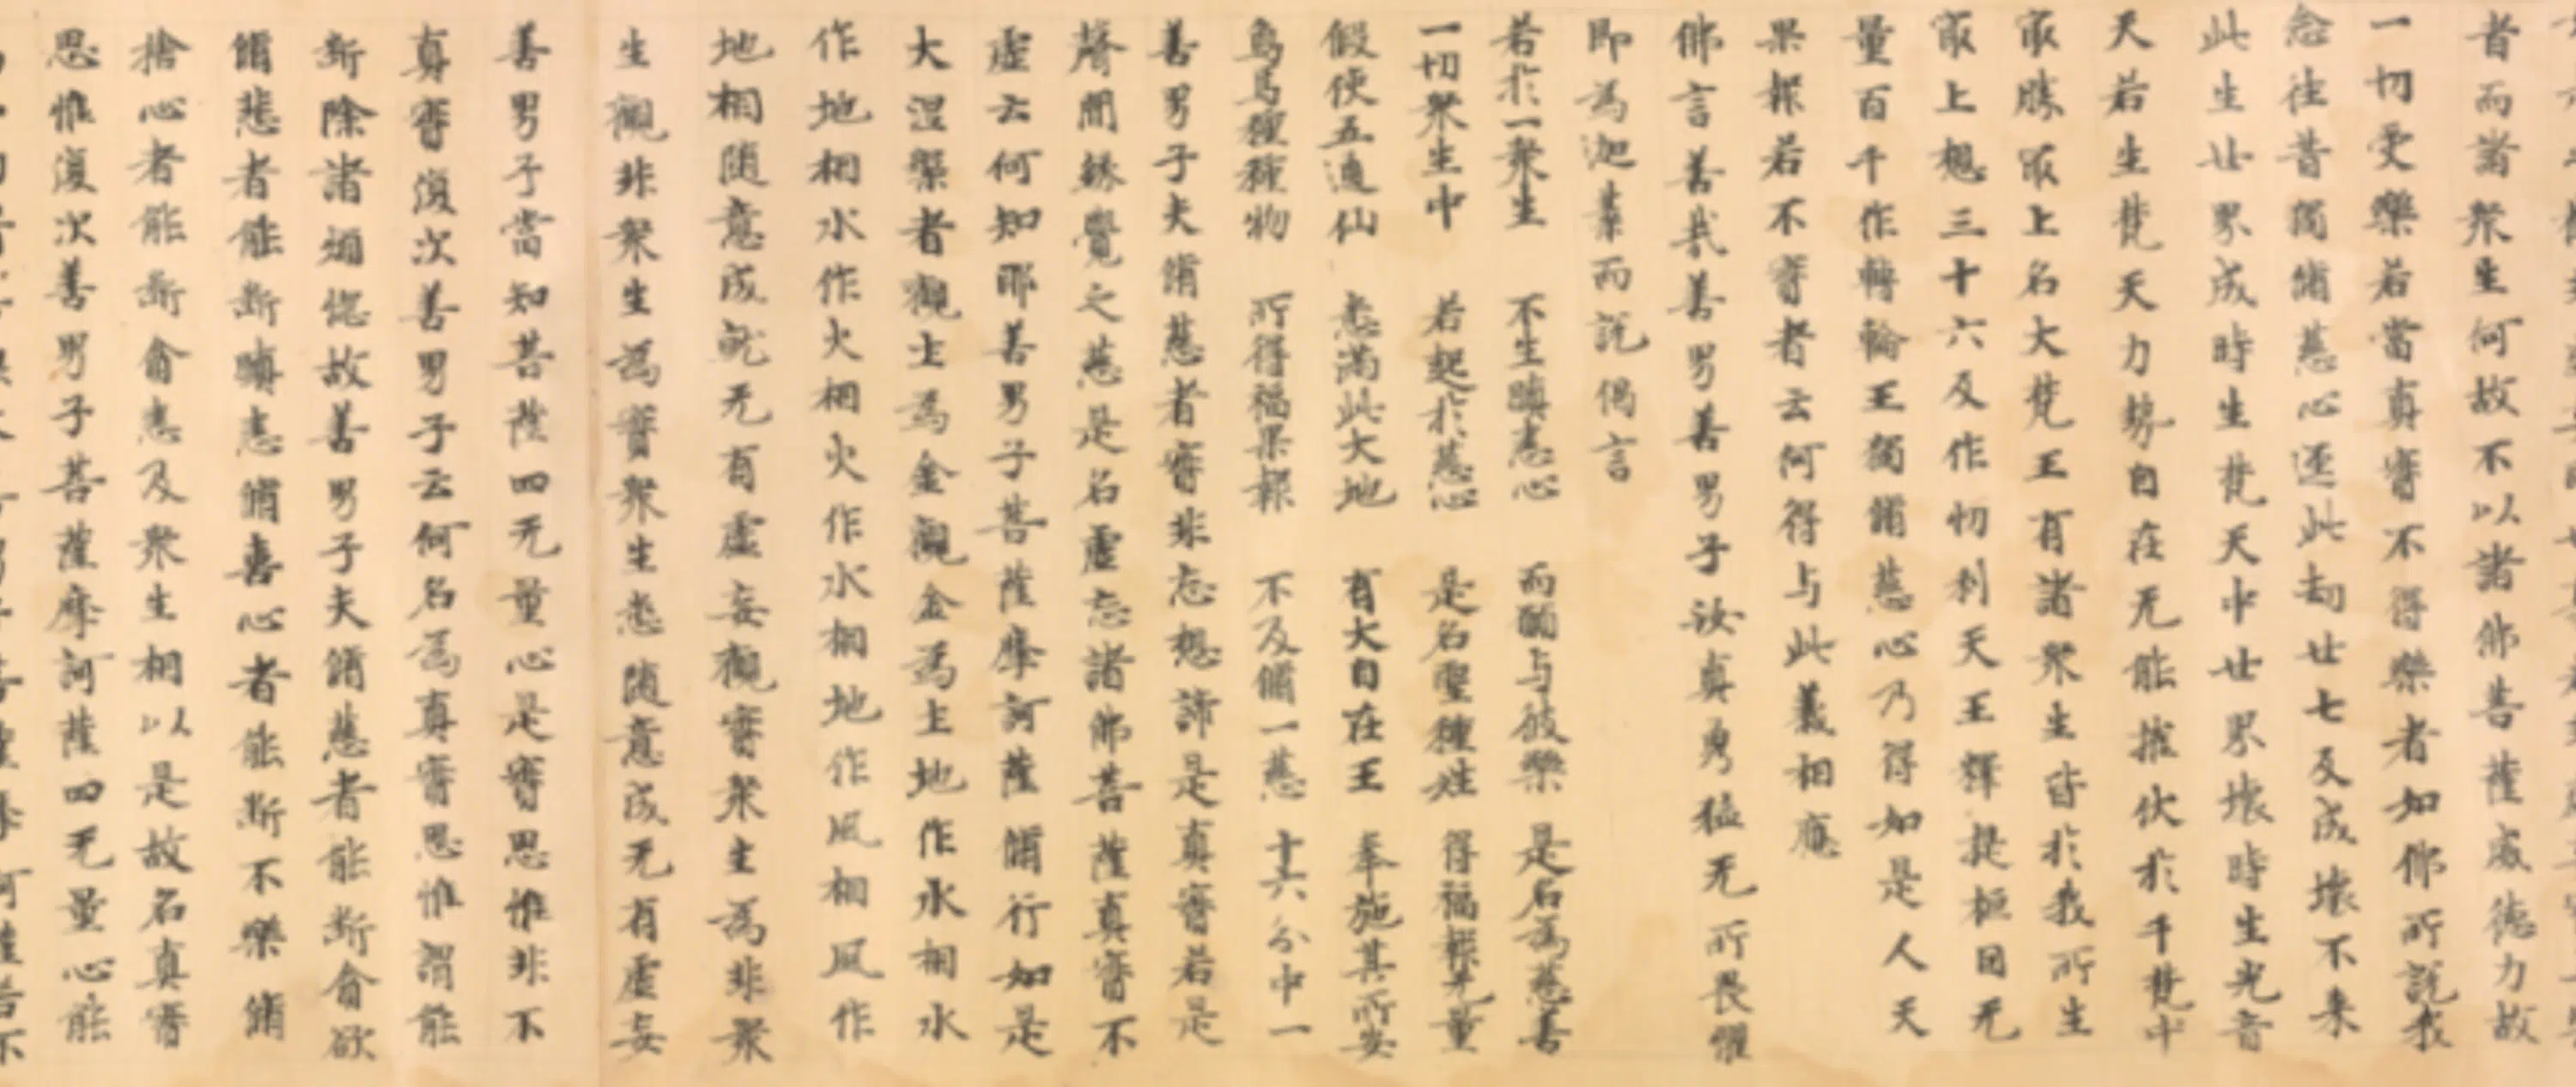 者而諸衆生何故不以諸佛菩薩威德力故
一切受樂若當真實不得樂者如佛所說我
念往昔獨脩慈心逕此劫世七反成壞不来
此生世界成時生梵天中世界壞時生光音
天若生梵天力勢自在无能摧伏於千梵中
冣勝冣上名大梵王有諸衆生皆於我所生
冣上想三十六反作忉利天王釋提桓因无
量百千作轉輪王獨脩慈心乃得如是人天
果報若不實者云何得与此義相應
佛言善哉善男善男子汝真勇猛无所畏懼
即為迦葉而說偈言
若於一衆生 不生瞋恚心 而願与彼樂 是名為慈善
一切衆生中 若起於慈心 是名聖種姓 得福報无量
假使五通仙 悉滿此大地 有大自在王 奉施其所安
烏馬種種物 所得福果報 不及脩一慈 十六分中一
善男子夫脩慈者實非忘想諦是真實若是
聲聞緣覺之慈是名虛忘諸佛菩薩真實不
虛云何知耶善男子菩薩摩訶薩脩行如是
大涅槃者觀土為金觀金為土地作水相水
作地相水作火相火作水相地作風相風作
地相随意成就无有虛妄觀實衆生為非衆
生觀非衆生為實衆生悉随意成无有虛妄
善男子當知菩薩四无量心是實思惟非不
真實復次善男子云何名為真實思惟謂能
断除諸煩惱故善男子夫脩慈者能断貪欲
脩悲者能断瞋恚脩喜心者能断不樂脩
捨心者能断貪恚及衆生相以是故名真實
思惟復次善男子菩薩摩訶薩四无量心能